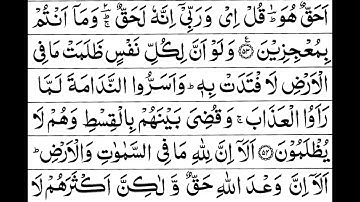 اَحَقٌّ هُوَ ؕ قُلْ اِیْ وَرَبِّیْۤ اِنَّهٗ لَحَقٌّ ؔؕ وَمَاۤ اَنْتُمْ
بِمُعْجِزِیْنَ ﴿۵۳﴾ وَلَوْ اَنَّ لِكُلِّ نَفْسٍ ظَلَمَتْ مَا فِی
الْاَرْضِ لَافْتَدَتْ بِهٖ ؕ وَاَسَرُّوا النَّدَامَةَ لَمَّا
رَاَوُا الْعَذَابَ ۚ وَقُضِیَ بَیْنَهُمْ بِالْقِسْطِ وَهُمْ لَا
یُظْلَمُوْنَ ﴿۵۴﴾ اَلَاۤ اِنَّ لِلّٰهِ مَا فِی السَّمٰوٰتِ وَالْاَرْضِ ؕ
اَلَاۤ اِنَّ وَعْدَ اللّٰهِ حَقٌّ وَّلٰكِنَّ اَكْثَرَهُمْ لَا